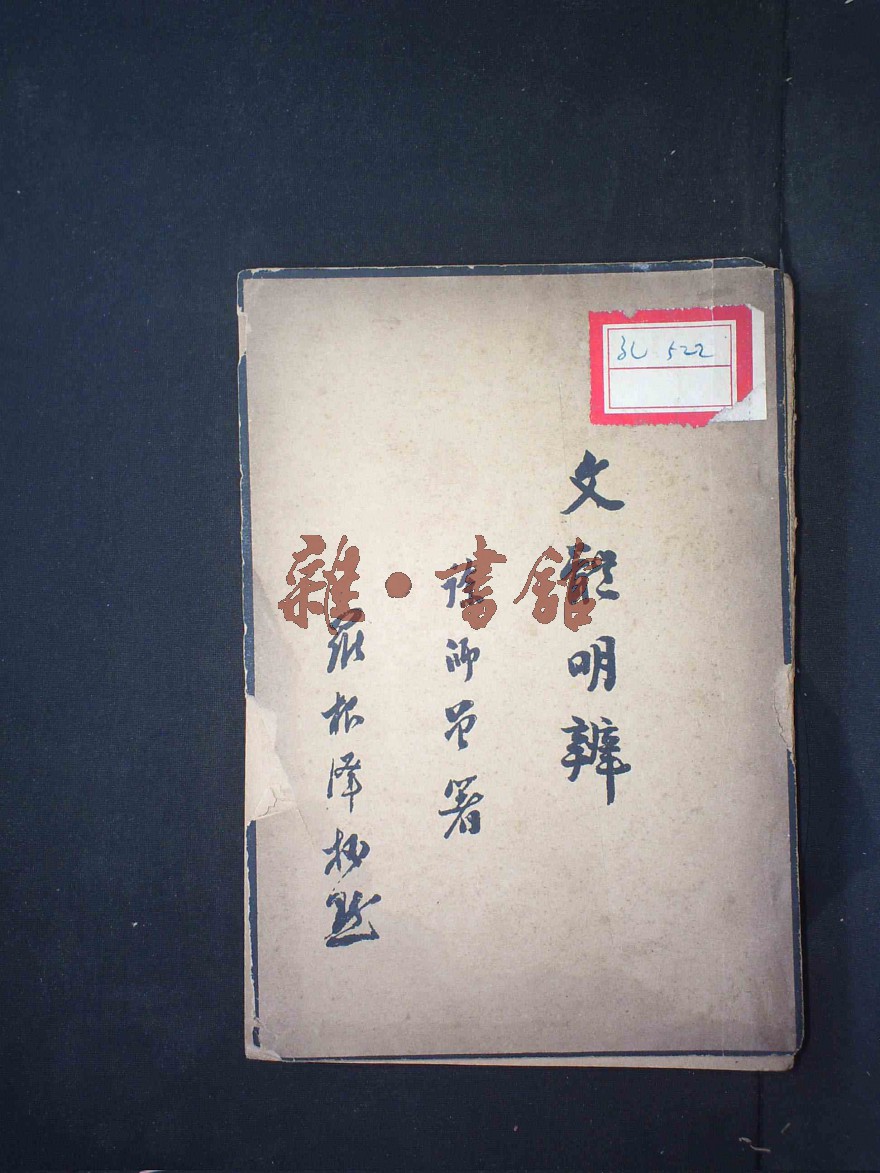 522
文體明辨
徐師曾著
羅根澤校點
雜·書館